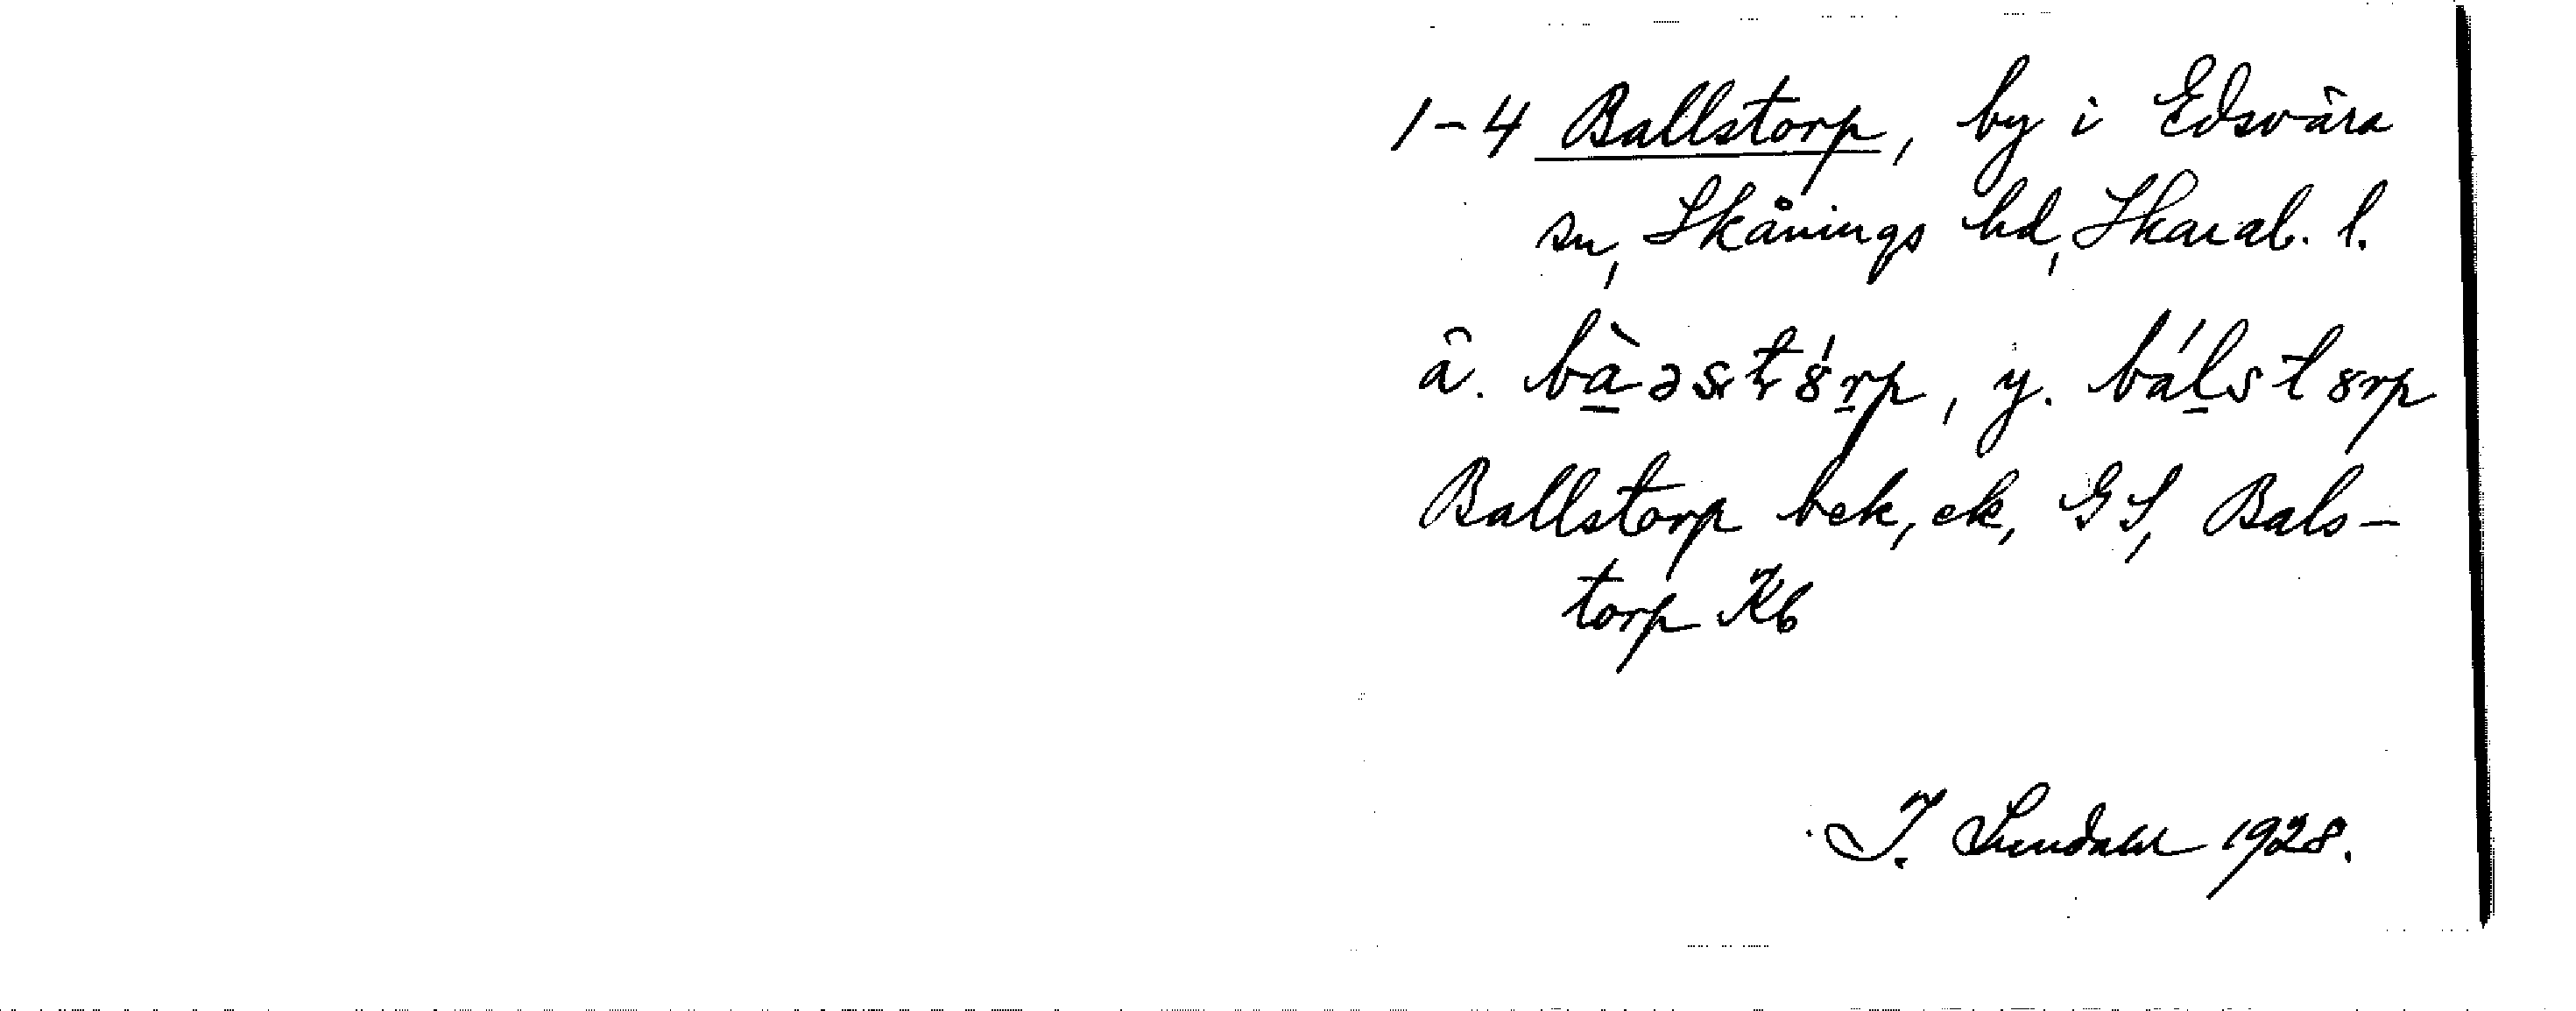 1-4 Ballstorp, by i Edsvära
sn, Skånings hd, Skarab. l.
ä. bàəstȣ́rp, y. bálstȣrp
Ballstorp bek, ek, GS, Bals-
torp Kb
I. Lundahl 1928.